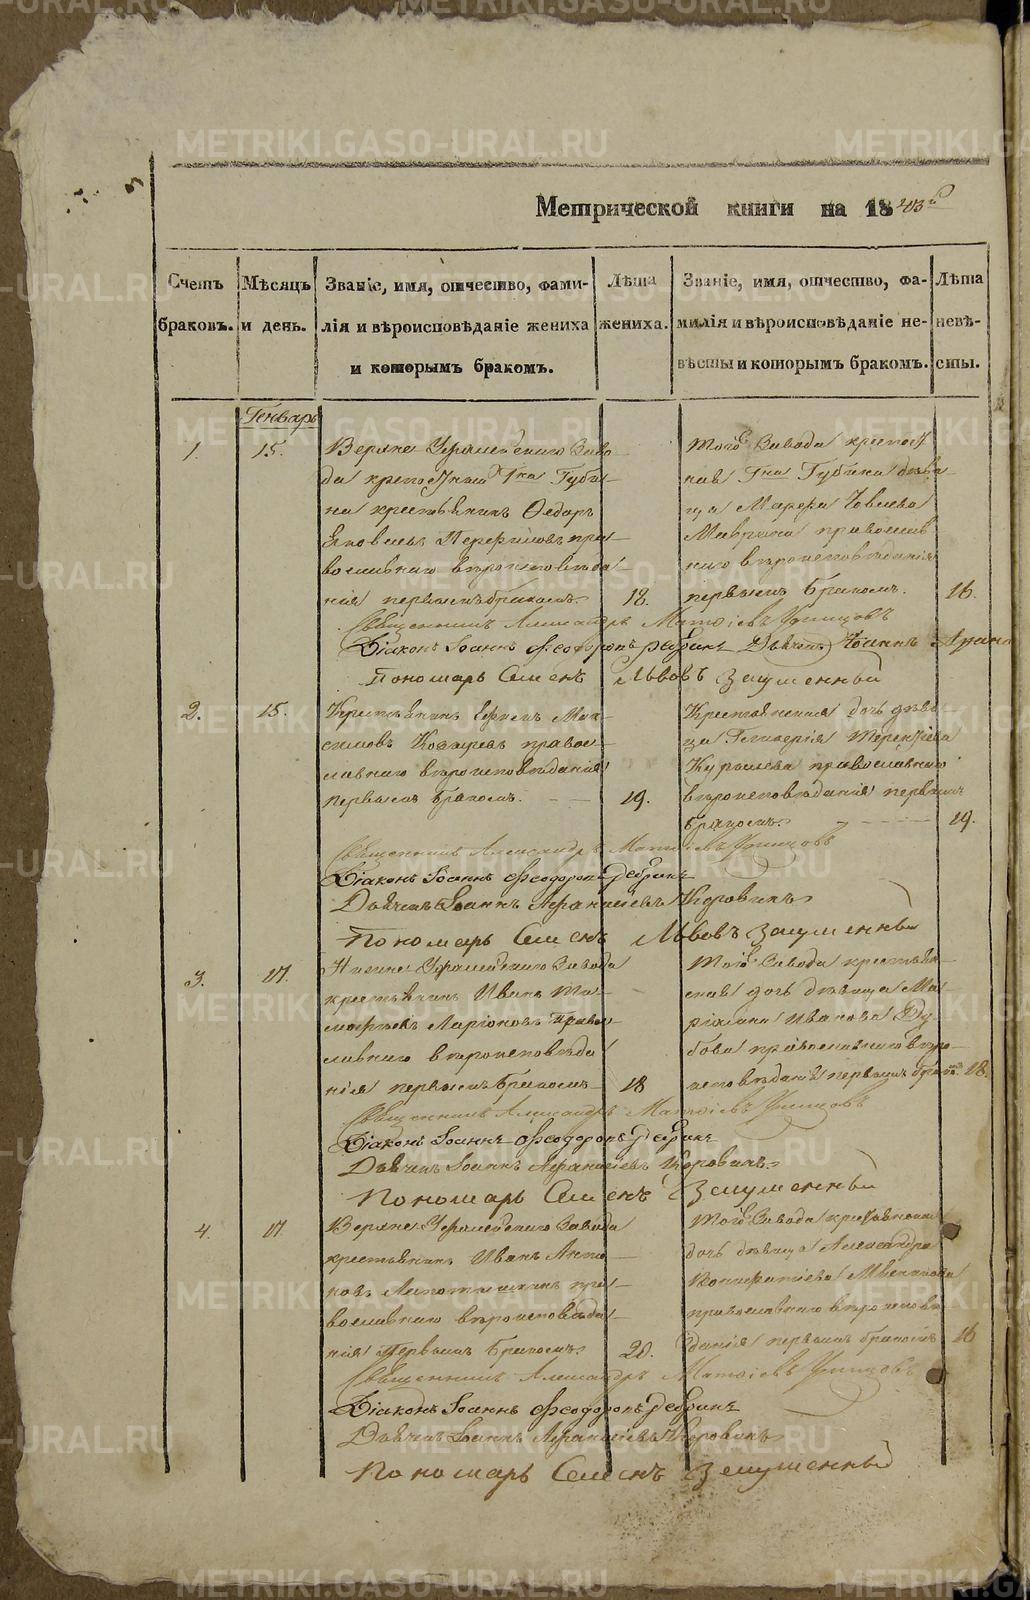 Метрической книги на 1843й
Счетъ браковъ.
Мѣсяцъ и день.
Званіе, имя, отчество, фами-
лія и вѣроисповѣданіе жениха
и которымъ бракомъ.
Лѣта жениха.
Званіе, имя, отчество, фа-
милія и вѣроисповѣданіе не-
вѣсты и которымъ бракомъ.
Лѣта невѣ-
сты.
Генварь
1.
15.
Верхне Уфалейскаго Заво-
да крепостный Гна Губи-
на крестьянинъ Ѳедоръ
Яковлевъ Перфиловъ пра-
вославнаго вѣроисповѣда-
нія первымъ бракомъ.
18.
Того Завода крепост-
ная Гна Губина дѣви-
ца Марфа
православ
наго вѣроисповѣданія
первымъ бракомъ.
16.
Священникъ Александръ Матѳіевъ
Діаконъ Іоаннъ Ѳеодоровъ Дьячекъ Іоаннъ
Пономарь Семенъ Львовъ
2.
15.
Крестьянинъ Ефимъ Мак-
симовъ правос-
лавнаго вѣроисповѣданія
первымъ бракомъ.
19.
Крестьянская дочь дѣви-
ца Гликерія Терентіева
православнаго
вѣроисповѣданія первымъ
бракомъ.
19.
Священникъ Александръ Матѳіевъ
Діаконъ Іоаннъ Ѳеодоровъ
Дьячекъ Іоаннъ Аѳанасіевъ Коровинъ
Пономарь Семенъ Львовъ
3.
17.
Нижне Уфалейскаго Завода
крестьянинъ Иванъ Ти-
моѳѣевъ Ларіоновъ Право-
славнаго вѣроисповѣда
нія первымъ бракомъ
18
Того Завода крестьян-
ская дочь дѣвица Ма-
Иванова Ду-
бова православнаго вѣро-
исповѣданія первымъ бракомъ
18.
Священникъ Александръ Матѳіевъ
Діаконъ Іоаннъ Ѳеодоровъ
Дьячекъ Іоаннъ Аѳанасіевъ Коровинъ.
Пономарь Семенъ
4.
17.
Верхне Уфалейскаго Завода
крестьянинъ Иванъ Анто-
новъ пра-
вославнаго вѣроисповѣда-
нія первымъ бракомъ.
20.
Того Завода крестьянская
дочь дѣвица Александра
православнаго вѣроисповѣ
данія первымъ бракомъ
16
Священникъ Александръ Матѳіевъ
Діаконъ Іоаннъ Ѳеодоровъ
Дьячекъ Іоаннъ Аѳанасіевъ Коровинъ
Пономарь Семенъ
METRIKI.GASO-URAL.RU